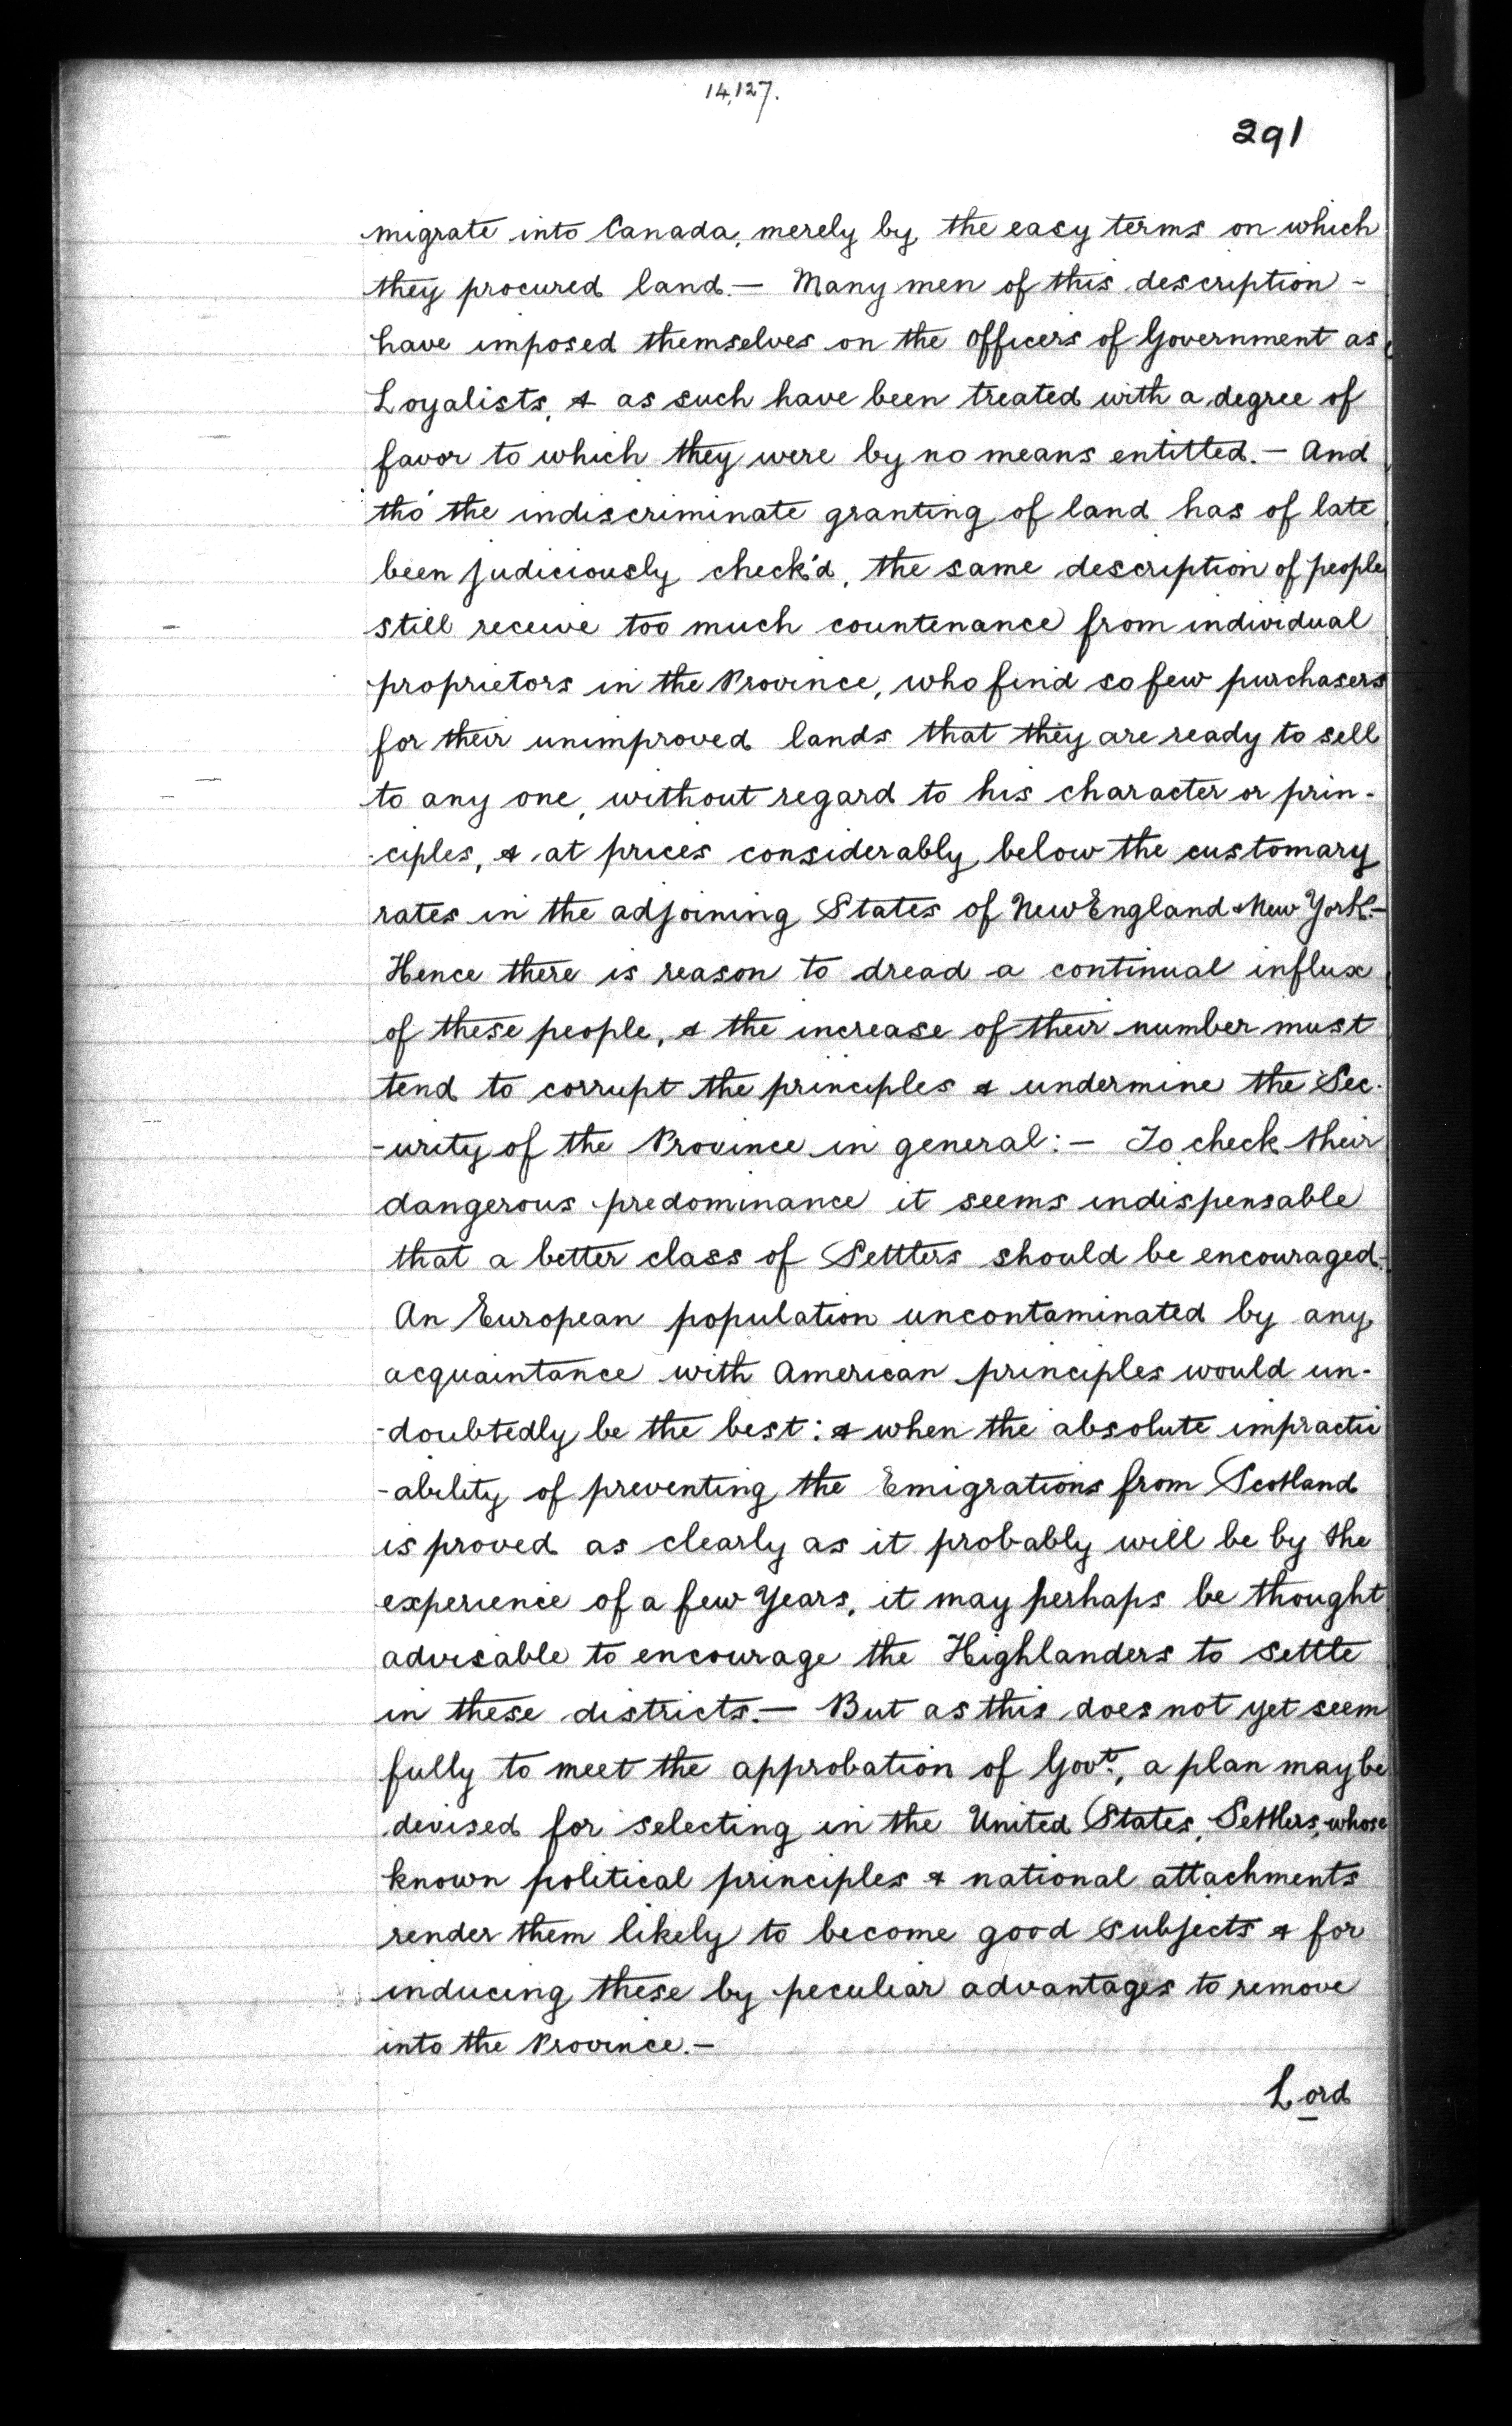 14,127.
291
migrate into Canada, merely by the easy terms on which
they procured land. — Many men of this description -
have imposed themselves on the Officers of Government as
Loyalists, & as such have been treated with a degree of
favor to which they were by no means entitled. — And
tho' the indiscriminate granting of land has of late
been judiciously check'd, the same description of people
still receive too much countenance from individual
proprietors in the Province, who find so few purchasers
for their unimproved lands that they are ready to sell
to any one, without regard to his character or prin-
ciples, & at prices considerably below the customary
rates in the adjoining States of New England & New York. —
Hence there is reason to dread a continual influx
of these people, & the increase of their number must
tend to corrupt the principles & undermine the Sec-
-urity of the Province in general: — To check their
dangerous predominance it seems indispensable
that a better class of Settlers should be encouraged.
An European population uncontaminated by any
acquaintance with American principles would un-
-doubtedly be the best: & when the absolute impractic
-ability of preventing the Emigrations from Scotland
is proved as clearly as it probably will be by the
experience of a few Years, it may perhaps be thought
advisable to encourage the Highlanders to settle
in these districts. — But as this does not yet seem
fully to meet the approbation of Govt., a plan may be
devised for selecting in the United States, Settlers, whose
known political principles & national attachments
render them likely to become good subjects & for
inducing these by peculiar advantages to remove
into the Province. —
Lord